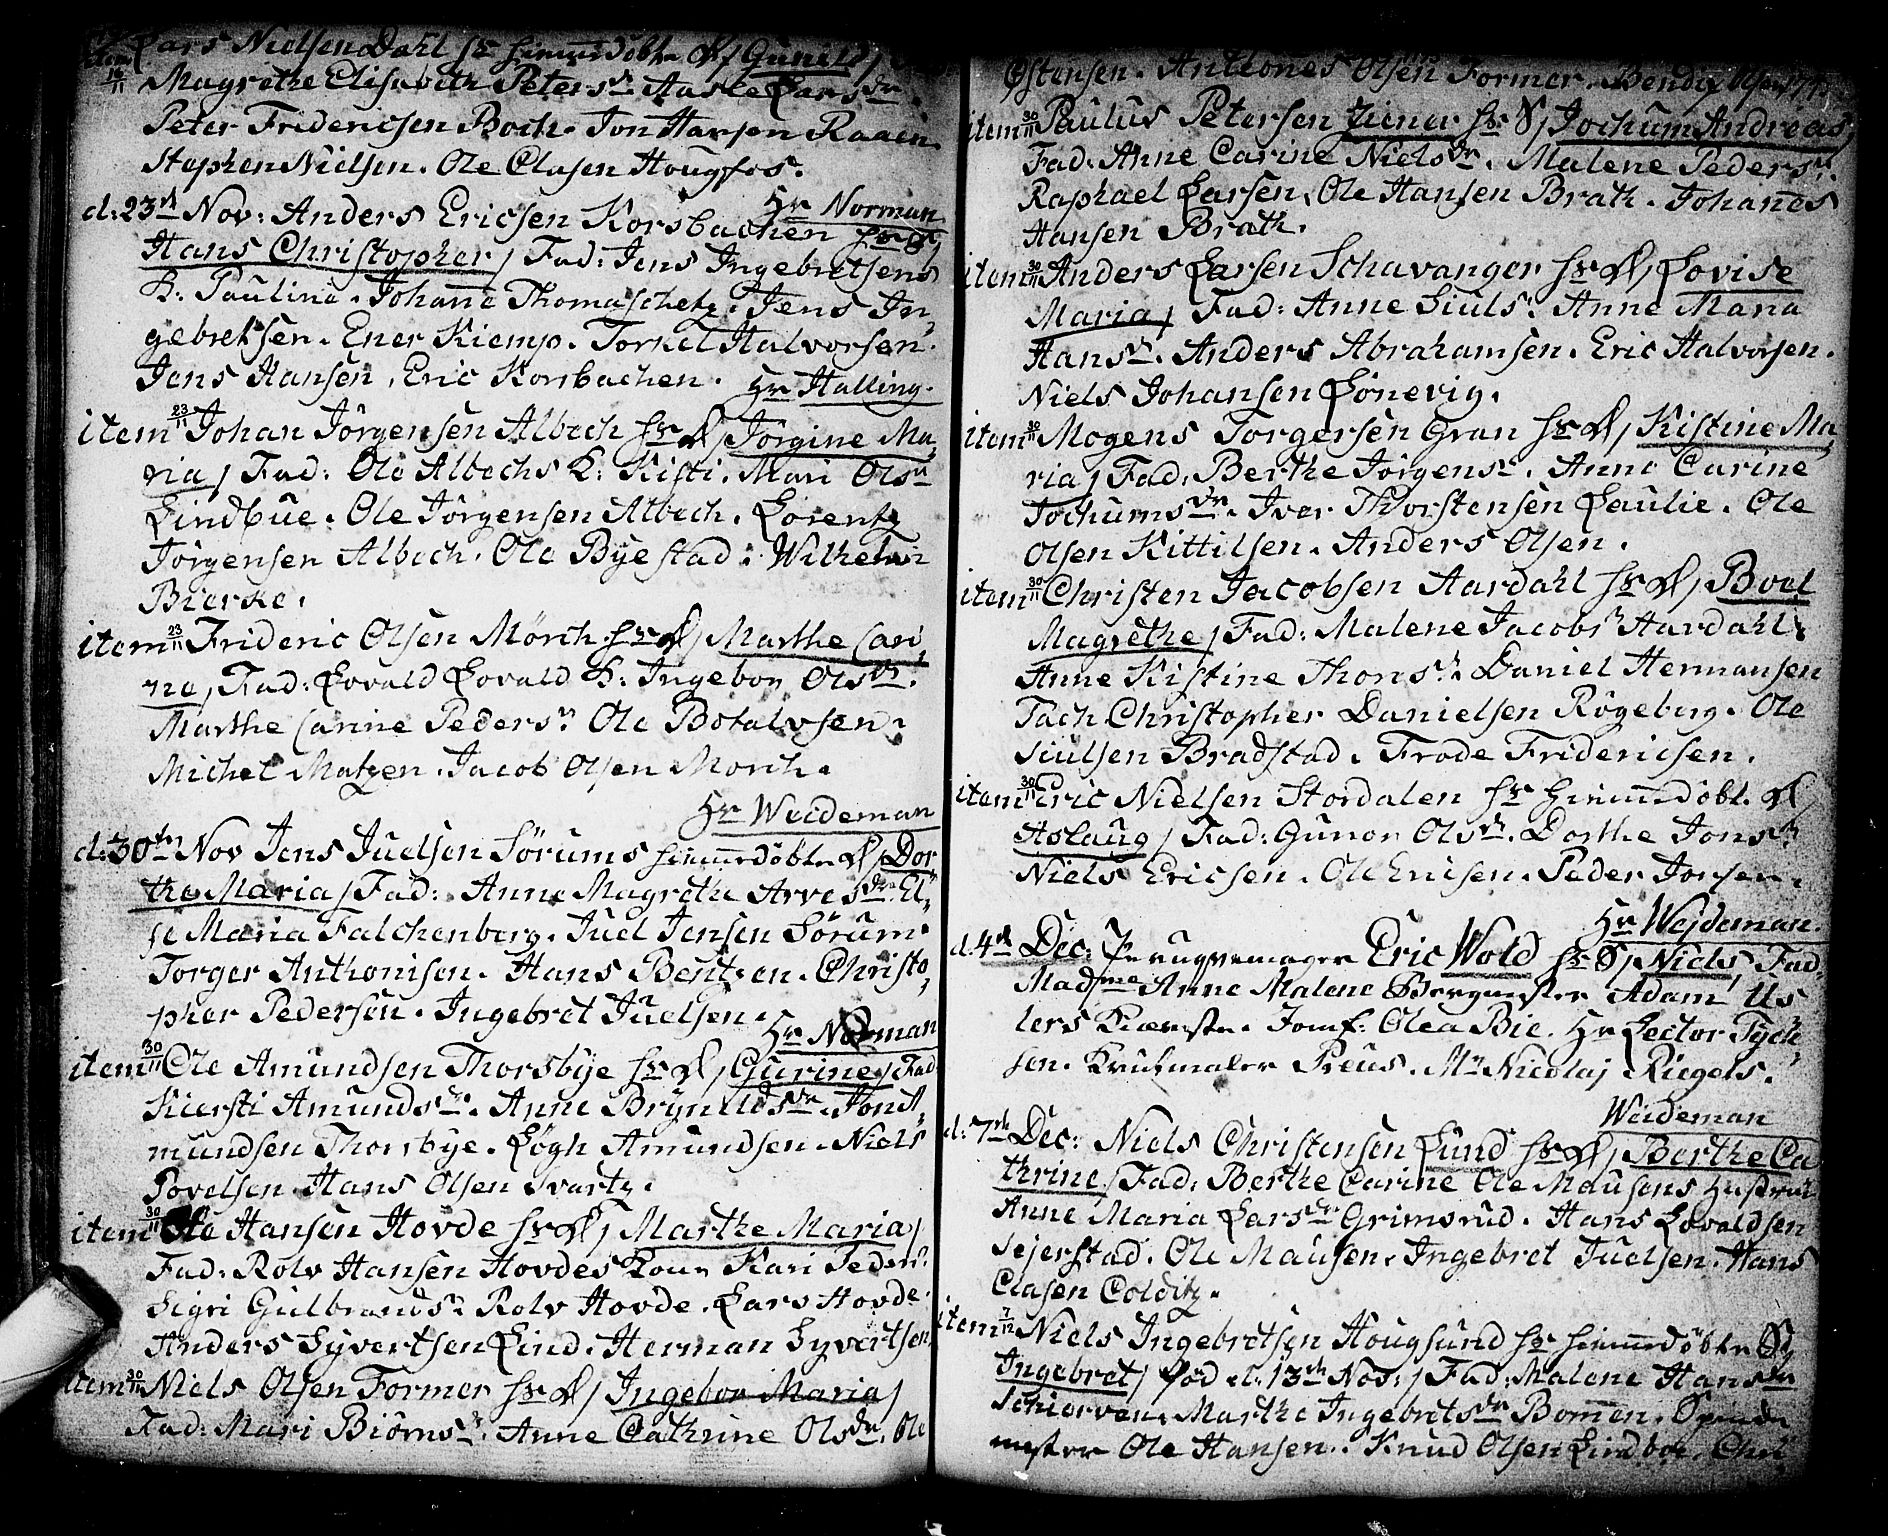 item 16/11 Lars Nielsen Dahl hr hiemedöbte D/ Gunild/
Magrethe Elisabeth Petersdr. Aasle Larsdr.
Peter Fridericsen Boch. Jon Hansen Raaen.
Stephen Nielsen. Ole Clasen Hougfos.
Hr Norman
d: 23d Nov: Anders Ericsen Korsbachen hr S/
Hans Christopher/ Fad: Jens Ingebretsens
K: Pauline. Johane Thomaschetz. Jens In,
gebretsen. Ener Kiemp. Torkel Halvorsen.
Jens Hansen. Eric Korsbachen.
Hr Halling.
item 23/11 Johan Jörgensen Albech hr D/ Jörgine Ma,
ria/ Fad: Ole Albechs K: Kisti. Mari Olsdr
Lindbue. Ole Jörgensen Albech. Lorentz
Jörgensen Albech. Ole Byestad. Wilhelm
Bierke.
item 23/11 Frideric Olsen Mörch hr D/ Marthe Cari,
ne, Fad: Lovald Lovald K: Ingebor Olsdr.
Marthe Carine Pedersdr Ole Botalvsen.
Michel Matzen. Jacob Olsen Morch.
Hr Weideman
d: 30te Nov Jens Juelsen Sörums hiemedöbte D/ Dor
the Maria/ Fad: Anne Magrethe Arvesdr. El,
se Maria Falchenberg. Juel Jensen Sörum.
Torger Anthonisen. Hans Bentsen. Christo,
pher Pedersen. Ingebret Juelsen.
Hr Norman
item 30/11 Ole Amundsen Thorsbye hr D/ Gurine/ Fad
Kiersti Amundsdr. Anne Bryneldsdr. Jon A,
mundsen Thorsbye. Løgh Amundsen. Niels
Povelsen. Hans Olsen Svartz.
item 30/11 Ole Hansen Hovde hr D/ Marthe Maria/
Fad: Rolv Hansen Hovdes Kone Kari Pedersdr
Sigri Gulbrandsdr Rolv Hovde. Lars Hovde.
Anders Syvertsen Lind. Herman Syvertsen.
item 30/11 Niels Olsen Former hr D/ Ingebor Maria/
Fad: Mari Biörnsdr. Anne Cathrine Olsdr. Ole
Østensen. Anthones Olsen Former. Bendix Olsen
item 30/11 Paulus Petersen Ziener hr S/ Jochum Andreas/
Fad: Anne Carine Nielsdr. Malene Pedersdr.
Raphael Larsen. Ole Hansen Brath. Johanes
Hansen Brath.
item 30/11 Anders Larsen Schavanger hr D/ Lovise
Maria/ Fad: Anne Siulsdr Anne Maria
Hansdr. Anders Abrahamsen. Eric Halvorsen.
Niels Johansen Lönevig.
item 30/11 Mogens Torgersen Gran hr D/ Kistine Ma,
ria/ Fad: Berthe Jörgensdr. Anne Carine
Jochumsdr. Iver Thorstensen Laulie. Ole
Olsen Kittilsen. Anders Olsen.
item 30/11 Christen Jacobsen Aardahl hr D/ Boel
Magrethe/ Fad: Malene Jacobsdr Aardahl.
Anne Kistine Thorsdr. Daniel Hermansen
Tach. Christopher Danielsen Rögeberg. Ole
Siulsen Bradstad. Frode Fridericsen.
item 30/11 Eric Nielsen Stordalen hr hiemedöbt. D/
Aslaug/ Fad: Gunor Olsdr. Dorthe Jonsdr
Niels Ericsen. Ole Ericsen. Peder Jonsen.
Hr Wejdeman.
d. 4d Dec: Perugvemager Eric Wold hr S/ Niels, Fad:
Madme Anne Malene Bergmester Adam Us
lers Kiæreste. Jomf: Olea Bie. Hr Lector Tych
sen. Krusmaler Preus. Mr Nicolaj Riegels.
Weideman
d: 7de Dec: Niels Christensen Lund hr D/ Berthe Ca
thrine/ Fad: Berthe Carine Ole Mausens Hustrue
Anne Maria Larsdr Grimsrud. Hans Lovaldsen
Sejerstad. Ole Mausen. Ingebret Juelsen. Hans
Clasen Colditz.
item 7/12 Niels Ingebretsen Hougsund hr hiemedöbte S/
Ingebret/ fød d: 13de Nov:/ Fad: Malene Hansdr
Schierven. Marthe Ingebretsdr Bomen.
mester Ole Hansen. Knud Olsen Lindboe. Chri